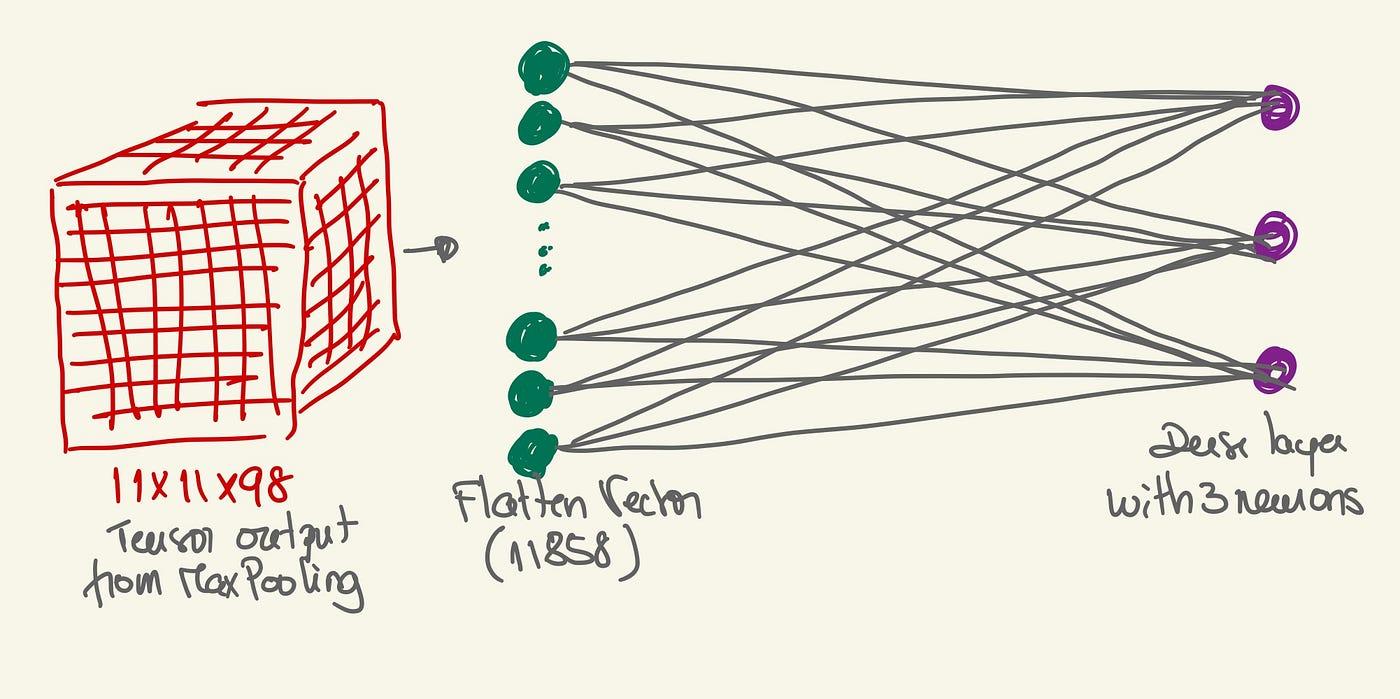 11x11x98
Tensor output
from MaxPooling
Flatten Vector
(11858)
Dense layer
with 3 neurons